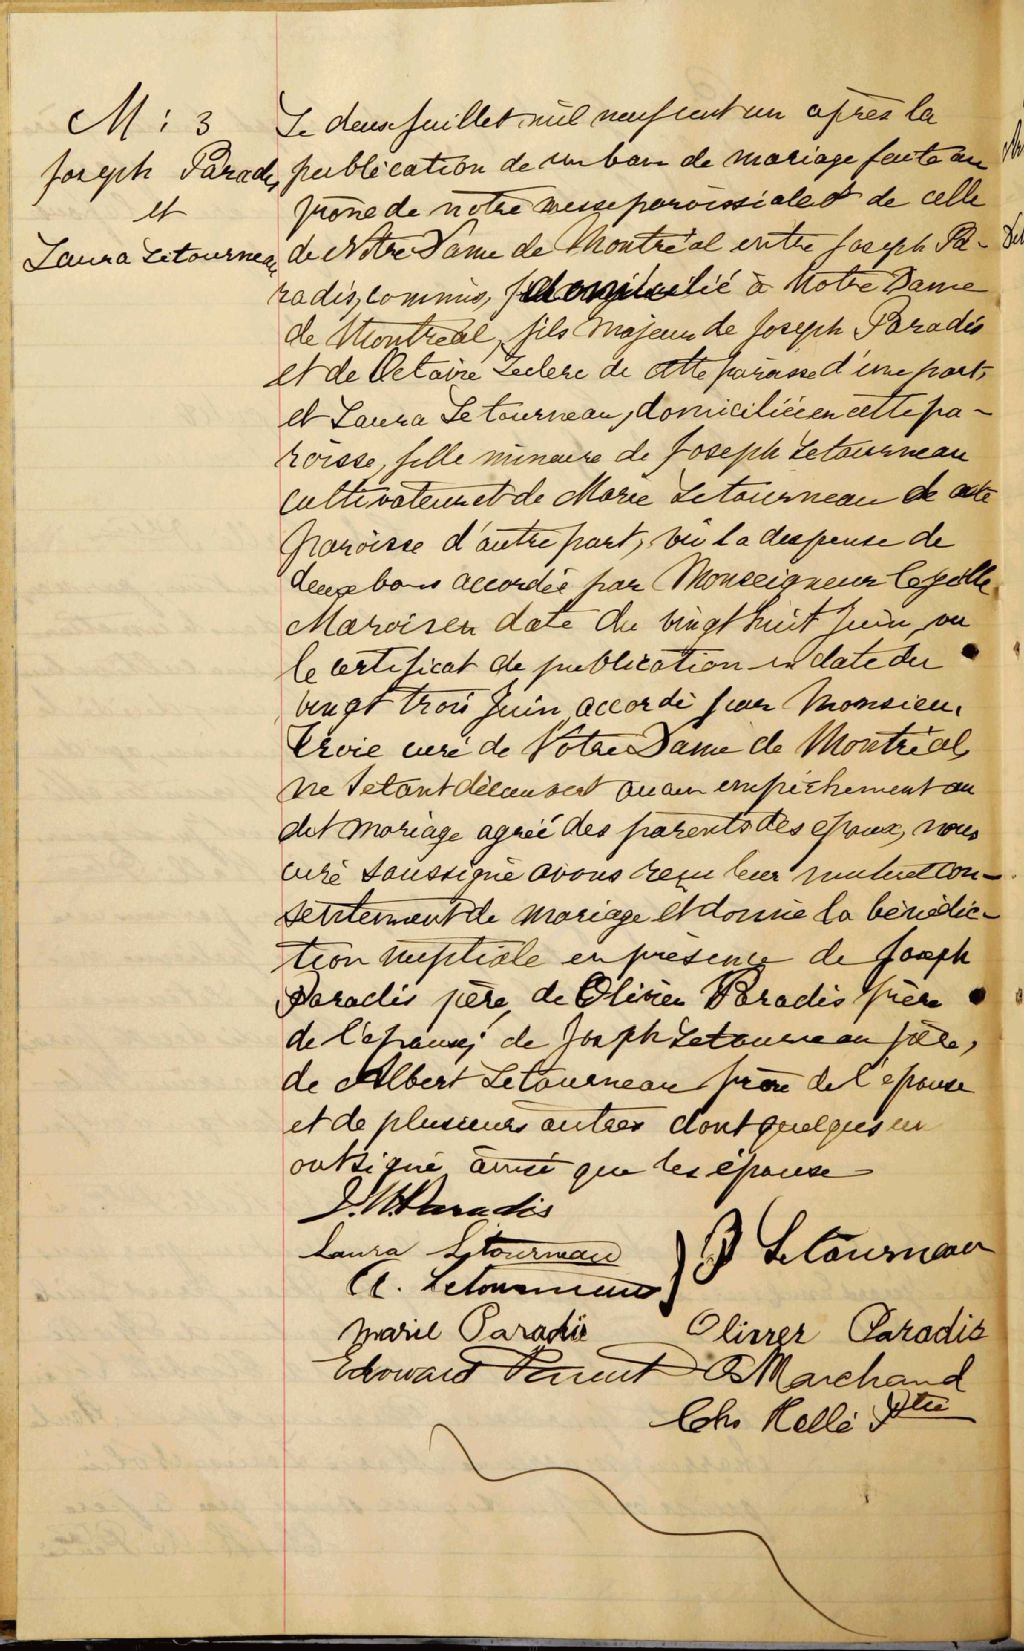 M : 3
Joseph Paradis
et
Laura Letourneau
Le deux Juillet mil neuf cent un après la
publication de un ban de mariage faite au
prône de notre messe paroissiale et de celle
de Notre Dame de Montréal entre Joseph Pa-
radis, commis, domicilié à Notre Dame
de Montréal, fils majeur de Joseph Paradis
et de Octavie Leclerc de cette paroisse d'une part,
et Laura Letourneau, domiciliée en cette pa-
roisse, fille mineure de Joseph Letourneau
cultivateur et de Marie Letourneau de cette
paroisse d'autre part, vû la dispense de
deux bans accordée par Monseigneur
Marois en date du vingt huit Juin, vu
le certificat de publication en date du
vingt trois Juin accordé par Monsieur
Troie curé de Notre Dame de Montréal,
ne s'etant découvert aucun empêchement au
dit mariage agréé des parents des epoux, nous
curé soussigné avons reçu leur mutuel con-
sentement de mariage et donné la bénédic-
tion nuptiale en présence de Joseph
Paradis père, de Olivier Paradis frère
de l'epoux, de Joseph Letourneau père,
de Albert Letourneau frère de l'epouse
et de plusieurs autres dont quelques un
ont signé ainsi que les épouse
J. Paradis
Laura Letourneau
A. Letourneau
J Letourneau
Marie Paradis
Olivier Paradis
Edouard Parent
Marchand
Chs Hallé Ptre